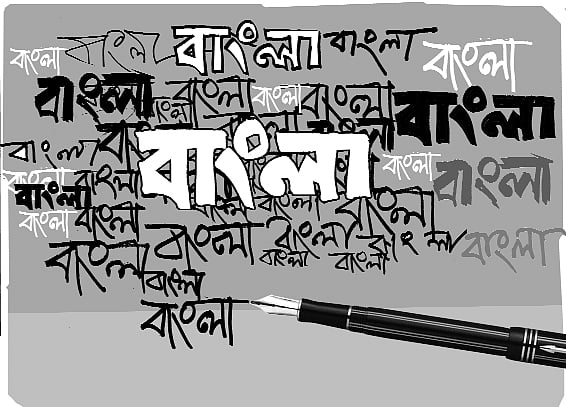 বাংলা বাংলা বাংলা বাংলা বাংলা
বাংলা বাংলা বাংলা বাংলা বাংলা বাংলা
বাংলা বাংলা বাংলা বাংলা
বাংলা বাংলা বাংলা বাংলা বাংলা
বাংলা বাংলা
বাংলা বাংলা বাংলা বাংলা বাংলা
বাংলা বাংলা বাংলা
বাংলা